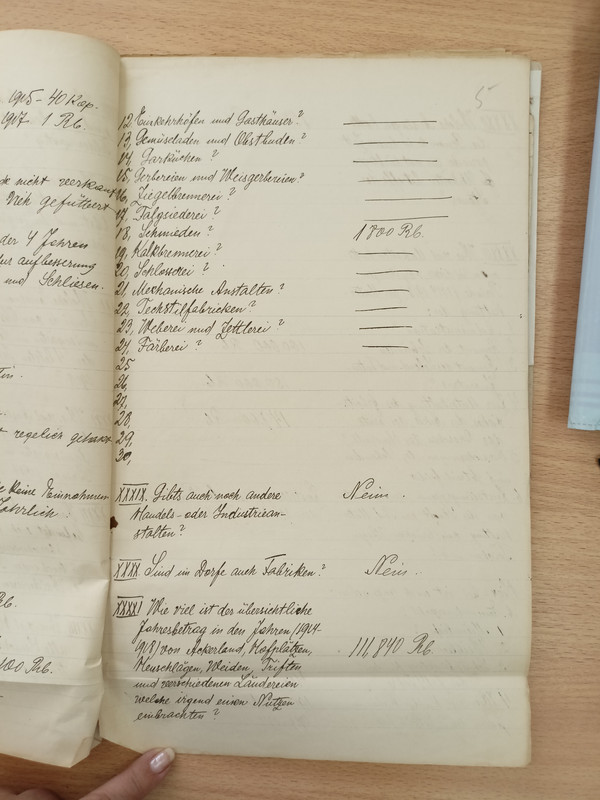 1915 - 40 Kop.
1917. 1 Rb.
nicht verkauft
Vieh gefüttert
der 4 Jahren
zur aufbesserung
und Schliesen.
regelich gebaut
keine Einnahmen
Jährlich.
Rb.
100 Rb.
5
12, Einkehrhöfen und Gasthäuser? —
13, Gemüseladen und Obstbuden? —
14, Garküchen? —
15, Gerbereien und Weisgerbereien? —
16, Ziegelbrennerei? —
17, Talgsiederei? —
18, Schmieden? 1800 Rb.
19, Kalkbrennerei? —
20, Schlosserei? —
21, Mechanische Anstalten? —
22, Techstilfabricken? —
23, Weberei und Zettlerei? —
24, Färberei? —
25
26,
27,
28,
29,
30,
XXXIX. Gibts auch noch andere Nein.
Handels- oder Industriean-
stalten?
XXXX. Sind im Dorfe auch Fabriken? Nein.
XXXXI Wie viel ist der übersichtliche
Jahresbetrag in den Jahren (1914-
1918) von Ackerland, Hofplätzen, 111,840 Rb.
Heuschlägen, Weiden, Triften
und verschiedenen Ländereien
welche irgend einen Nutzen
einbrachten?